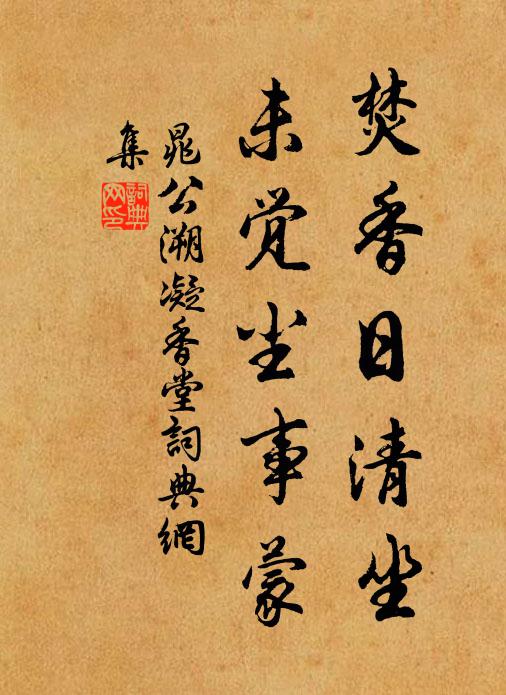 焚香日清坐
未觉尘事蒙
晁公溯凝香堂詞典網
集
詞典网印